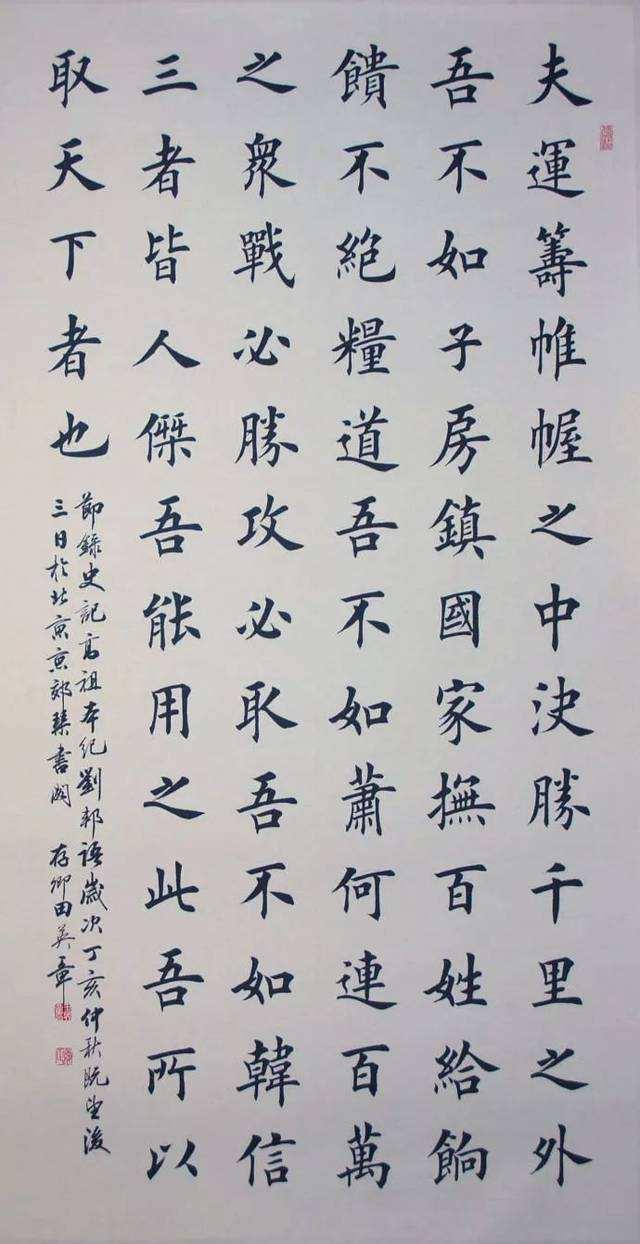 夫運籌帷幄之中決勝千里之外
吾不如子房鎮國家撫百姓給餉
饋不絕糧道吾不如蕭何連百萬
之衆戰必勝攻必取吾不如韓信
三者皆人傑吾能用之此吾所以
取天下者也
節錄史記高祖本紀劉邦語歲次丁亥仲秋既望後
三日於北京京郊琹書閣 存卿田英章